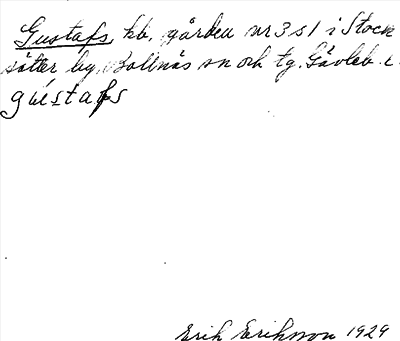 Gustafs, kb, gården nr 3 s1 i Stock
sätter by, Bollnäs sn och tg. Gävleb. l.
gústafs
Erik Eriksson 1929